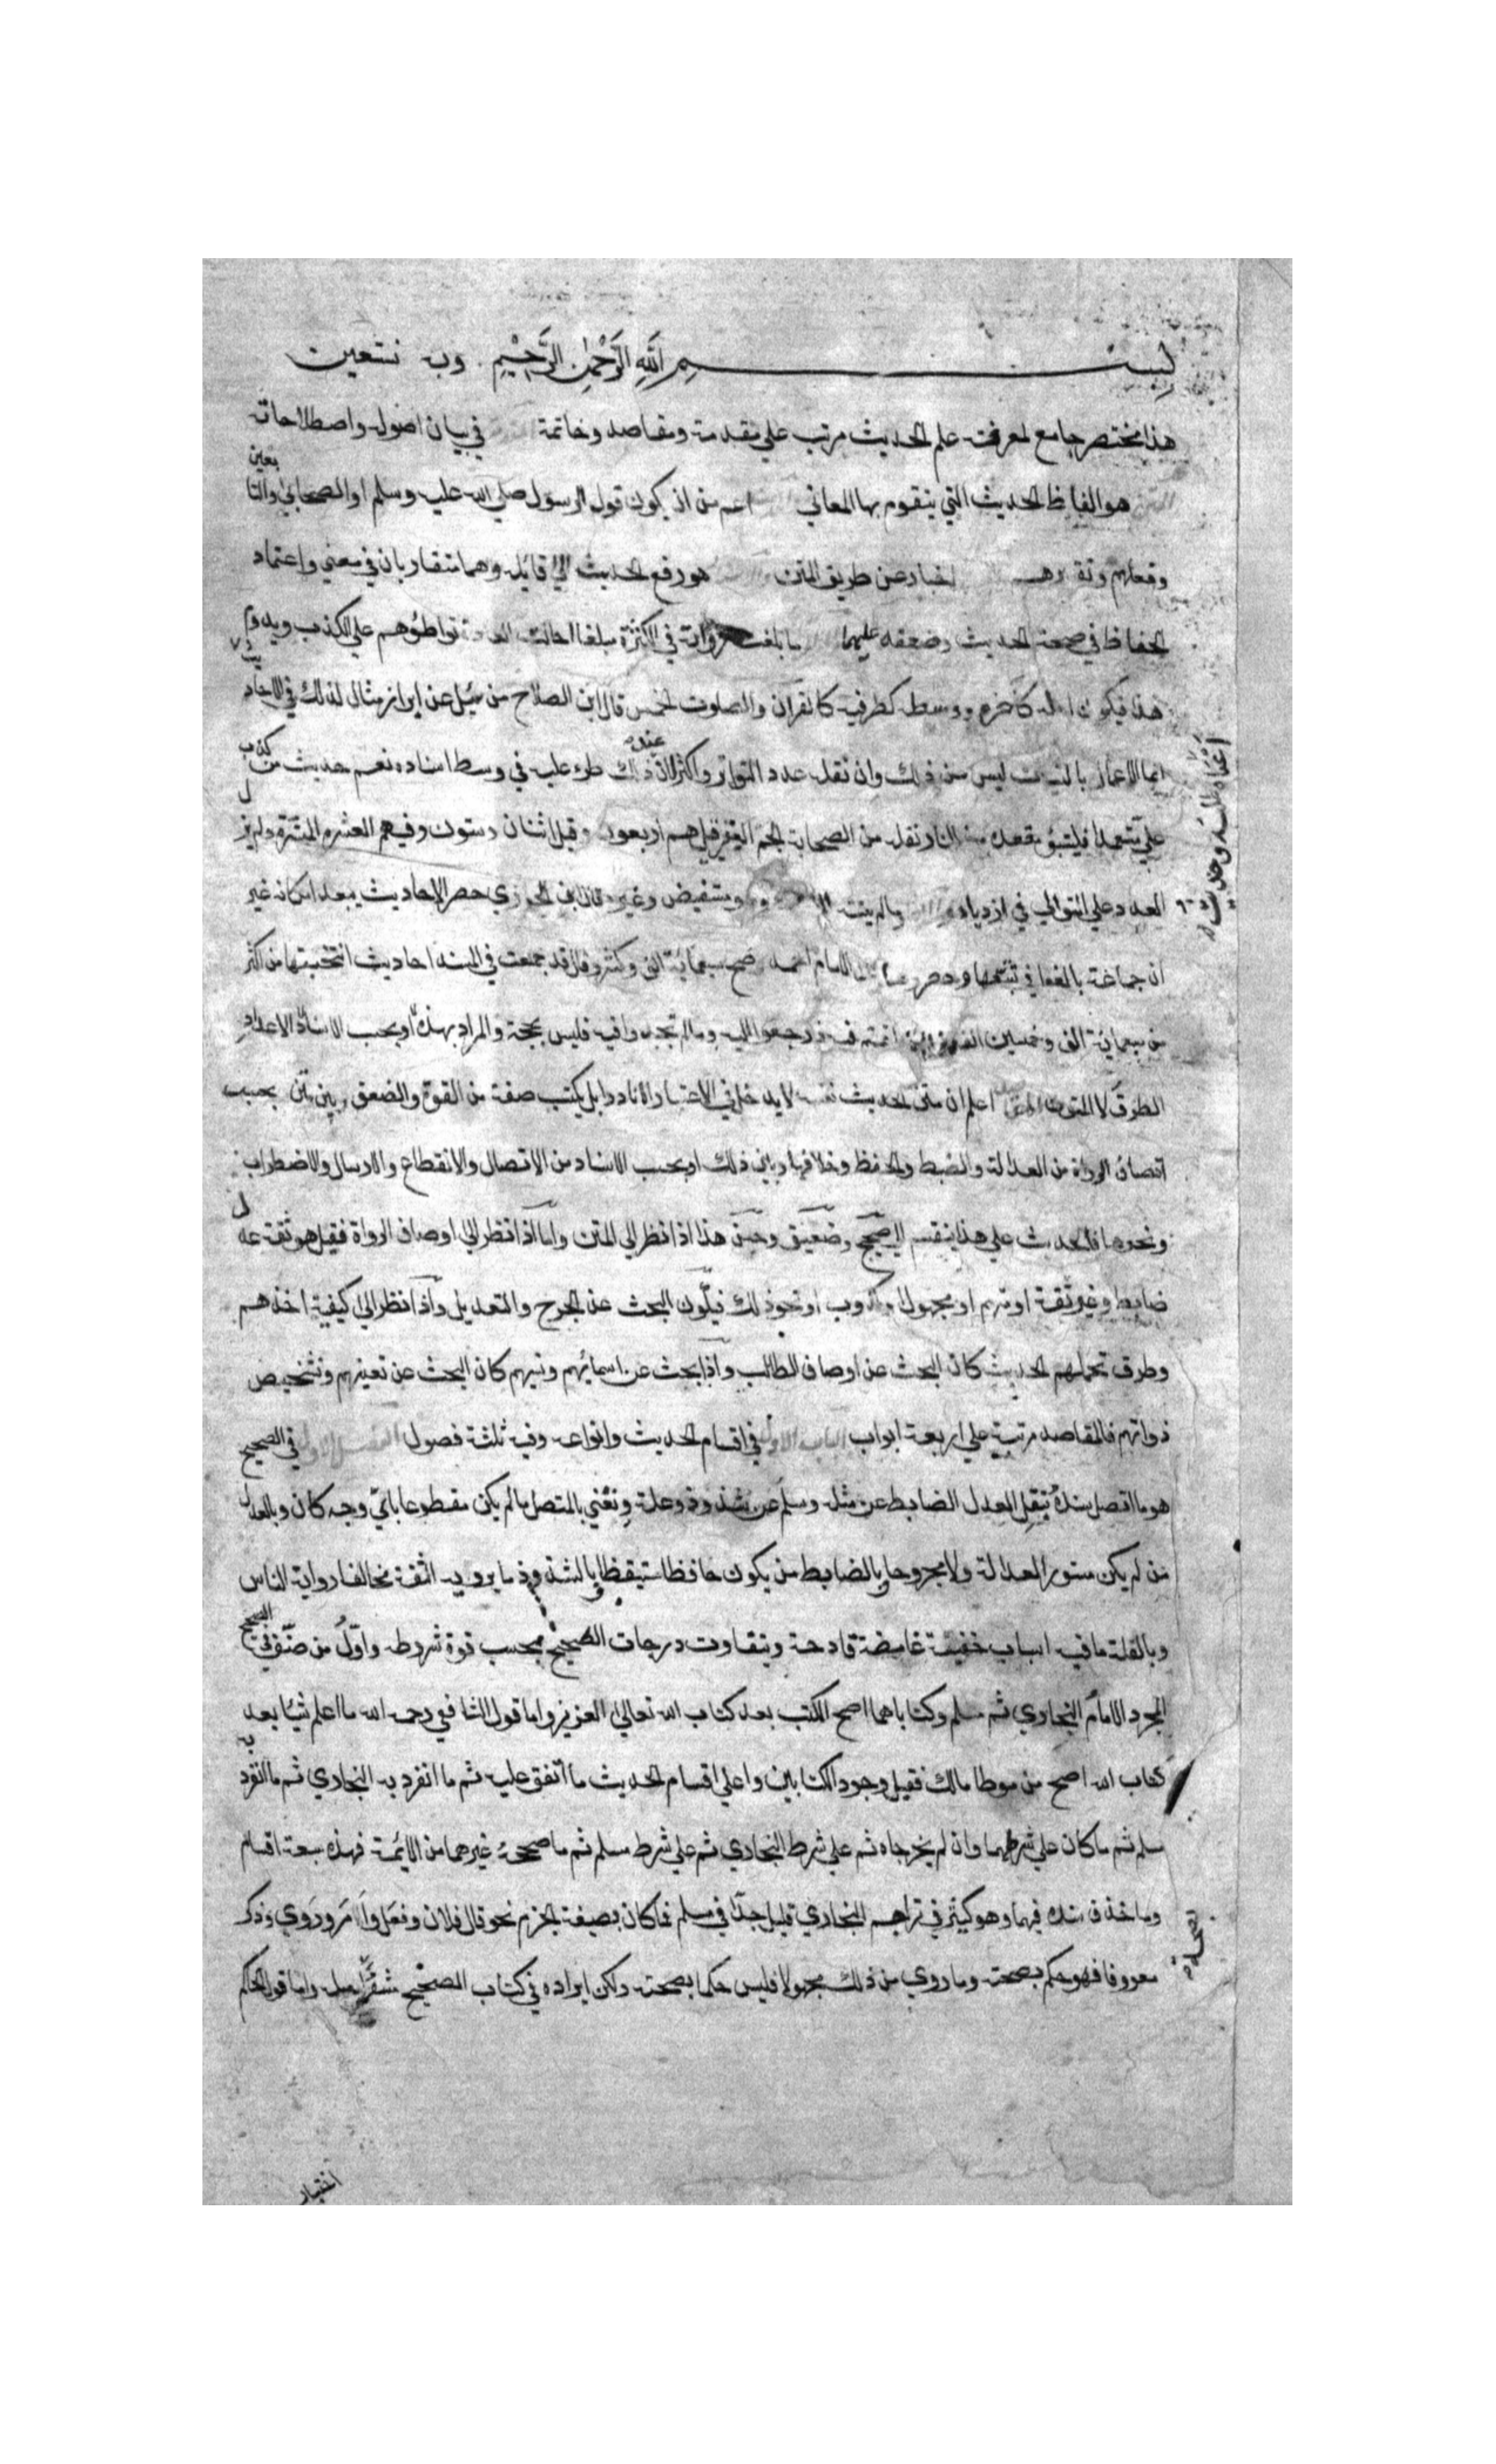 بسم الله الرحمن الرحيم وبه نستعين
هذا مختصر جامع لمعرفة علم الحديث مرتب علي مقدمة ومقاصد وخاتمة في بيان اصوله واصطلاحاته
المتن هو الفاظ الحديث التي يتقوم بها المعاني اعم من ان يكون قول الرسول صلي الله عليه وسلم او الصحابي والتابعين
وفعلهم وتقريرهم اخبار عن طريق المتن هو رفع الحديث الي قايله وهما متقاربان في معني واعتماد
الحفاظ في صحة الحديث وضعفه عليهما ما بلغت رواته في الكثرة مبلغا احالت العادة تواطؤهم علي الكذب ويدوم
هذا فيكون اوله كآخره ووسطه كطرفيه كالقرآن والصلوت الخمس قال ابن الصلاح من سُيل عن ابراز مثال لذلك في الاحاديث
انما الاعمال بالنيات ليس من ذلك وان نقله عدد التواتر واكثر لان ذلك طرء عليه في وسط اسناده نعم حديث من كذب
علي متعمدا فليتبؤ مقعده من النار نقله من الصحابة الجم الغفير قيل هم اربعون وقيل اثنان وستون وفيهم العشرة المبشرة ولم يزل
العدد علي التوالي في ازدياد ما لم ينته ومستفيض وغيره قال ابن الجوزي حصر الاحاديث يبعد امكانه غير
ان جماعة بالغوا في تتبعها وحصروها قال الامام احمد صح سبعمائة الف وكسر وقال قد جمعت في المسند احاديث انتخبتها من اكثر
من سبعمائة الف وخمسين الف فما اختلفتم فيه فارجعوا اليه وما لم تجدوا فيه فليس بحجة والمراد بهذه الاعداد
الطرق لا المتون اعلم ان متن الحديث نفسه لا يدخل في الاعتبار الا نادرا بل يكتسب صفة من القوة والضعف وبين بين بحسب
اوصاف الرواة من العدالة والضبط والحفظ وخلافها وبين ذلك او بحسب الاسناد من الاتصال والانقطاع والارسال والاضطراب
ونحوها فالحديث علي هذا ينقسم الي صحيح وضعيف وحسن هذا اذا نظر الي المتن واما اذا نظر الي اوصاف الرواة فقيل هو ثقة عدل
ضابط او غير ثقة او متهم او مجهول او كذوب او نحو ذلك فيكون البحث عن الجرح والتعديل واذا نظر الي كيفية اخذهم
وطرق تحملهم الحديث كان البحث عن اوصاف الطالب واذا بحث عن اسمائهم ونسبهم كان البحث عن تعينهم وتشخيص
ذواتهم فالمقاصد مرتبة علي اربعة ابواب الباب الاول في اقسام الحديث وانواعه وفيه ثلثة فصول الفصل الاول في الصحيح
هو ما اتصل سنده بنقل العدل الضابط عن مثله وسلم عن شذوذ وعلة ونعني بالمتصل ما لم يكن مقطوعا باي وجه كان وبالعدل
من لم يكن مستور العدالة ولا مجروحا وبالضابط من يكون حافظا متيقظا وبالشذوذ ما يرويه الثقة مخالفا رواية الناس
وبالعلة ما فيه اسباب خفية غامضة قادحة ويتفاوت درجات الصحيح بحسب قوة شروطه واوّل من صنف في الصحيح
المجرد الامام البخاري ثم مسلم وكتاباهما اصح الكتب بعد كتاب الله تعالي العزيز واما قول الشافعي رحمه الله ما اعلم شيئا بعد
كتاب الله اصح من موطا مالك فقبل وجود الكتابين واعلي اقسام الحديث ما اتفق عليه ثم ما انفرد به البخاري ثم ما انفرد به
مسلم ثم ما كان علي شرطهما وان لم يخرجاه ثم علي شرط البخاري ثم علي شرط مسلم ثم ما صححه غيرهما من الائمة فهذه سبعة اقسام
وما حذف سنده فيهما وهو كثير في تراجم البخاري قليل جدّا في مسلم فما كان بصيغة الجزم نحو قال فلان وفعل وامر وروي وذكر
معروفا فهو حكم بصحته وما روي من ذلك مجهولا فليس حكما بصحته ولكن ايراده في كتاب الصحيح مشعر واما قول الحاكم
اختيار